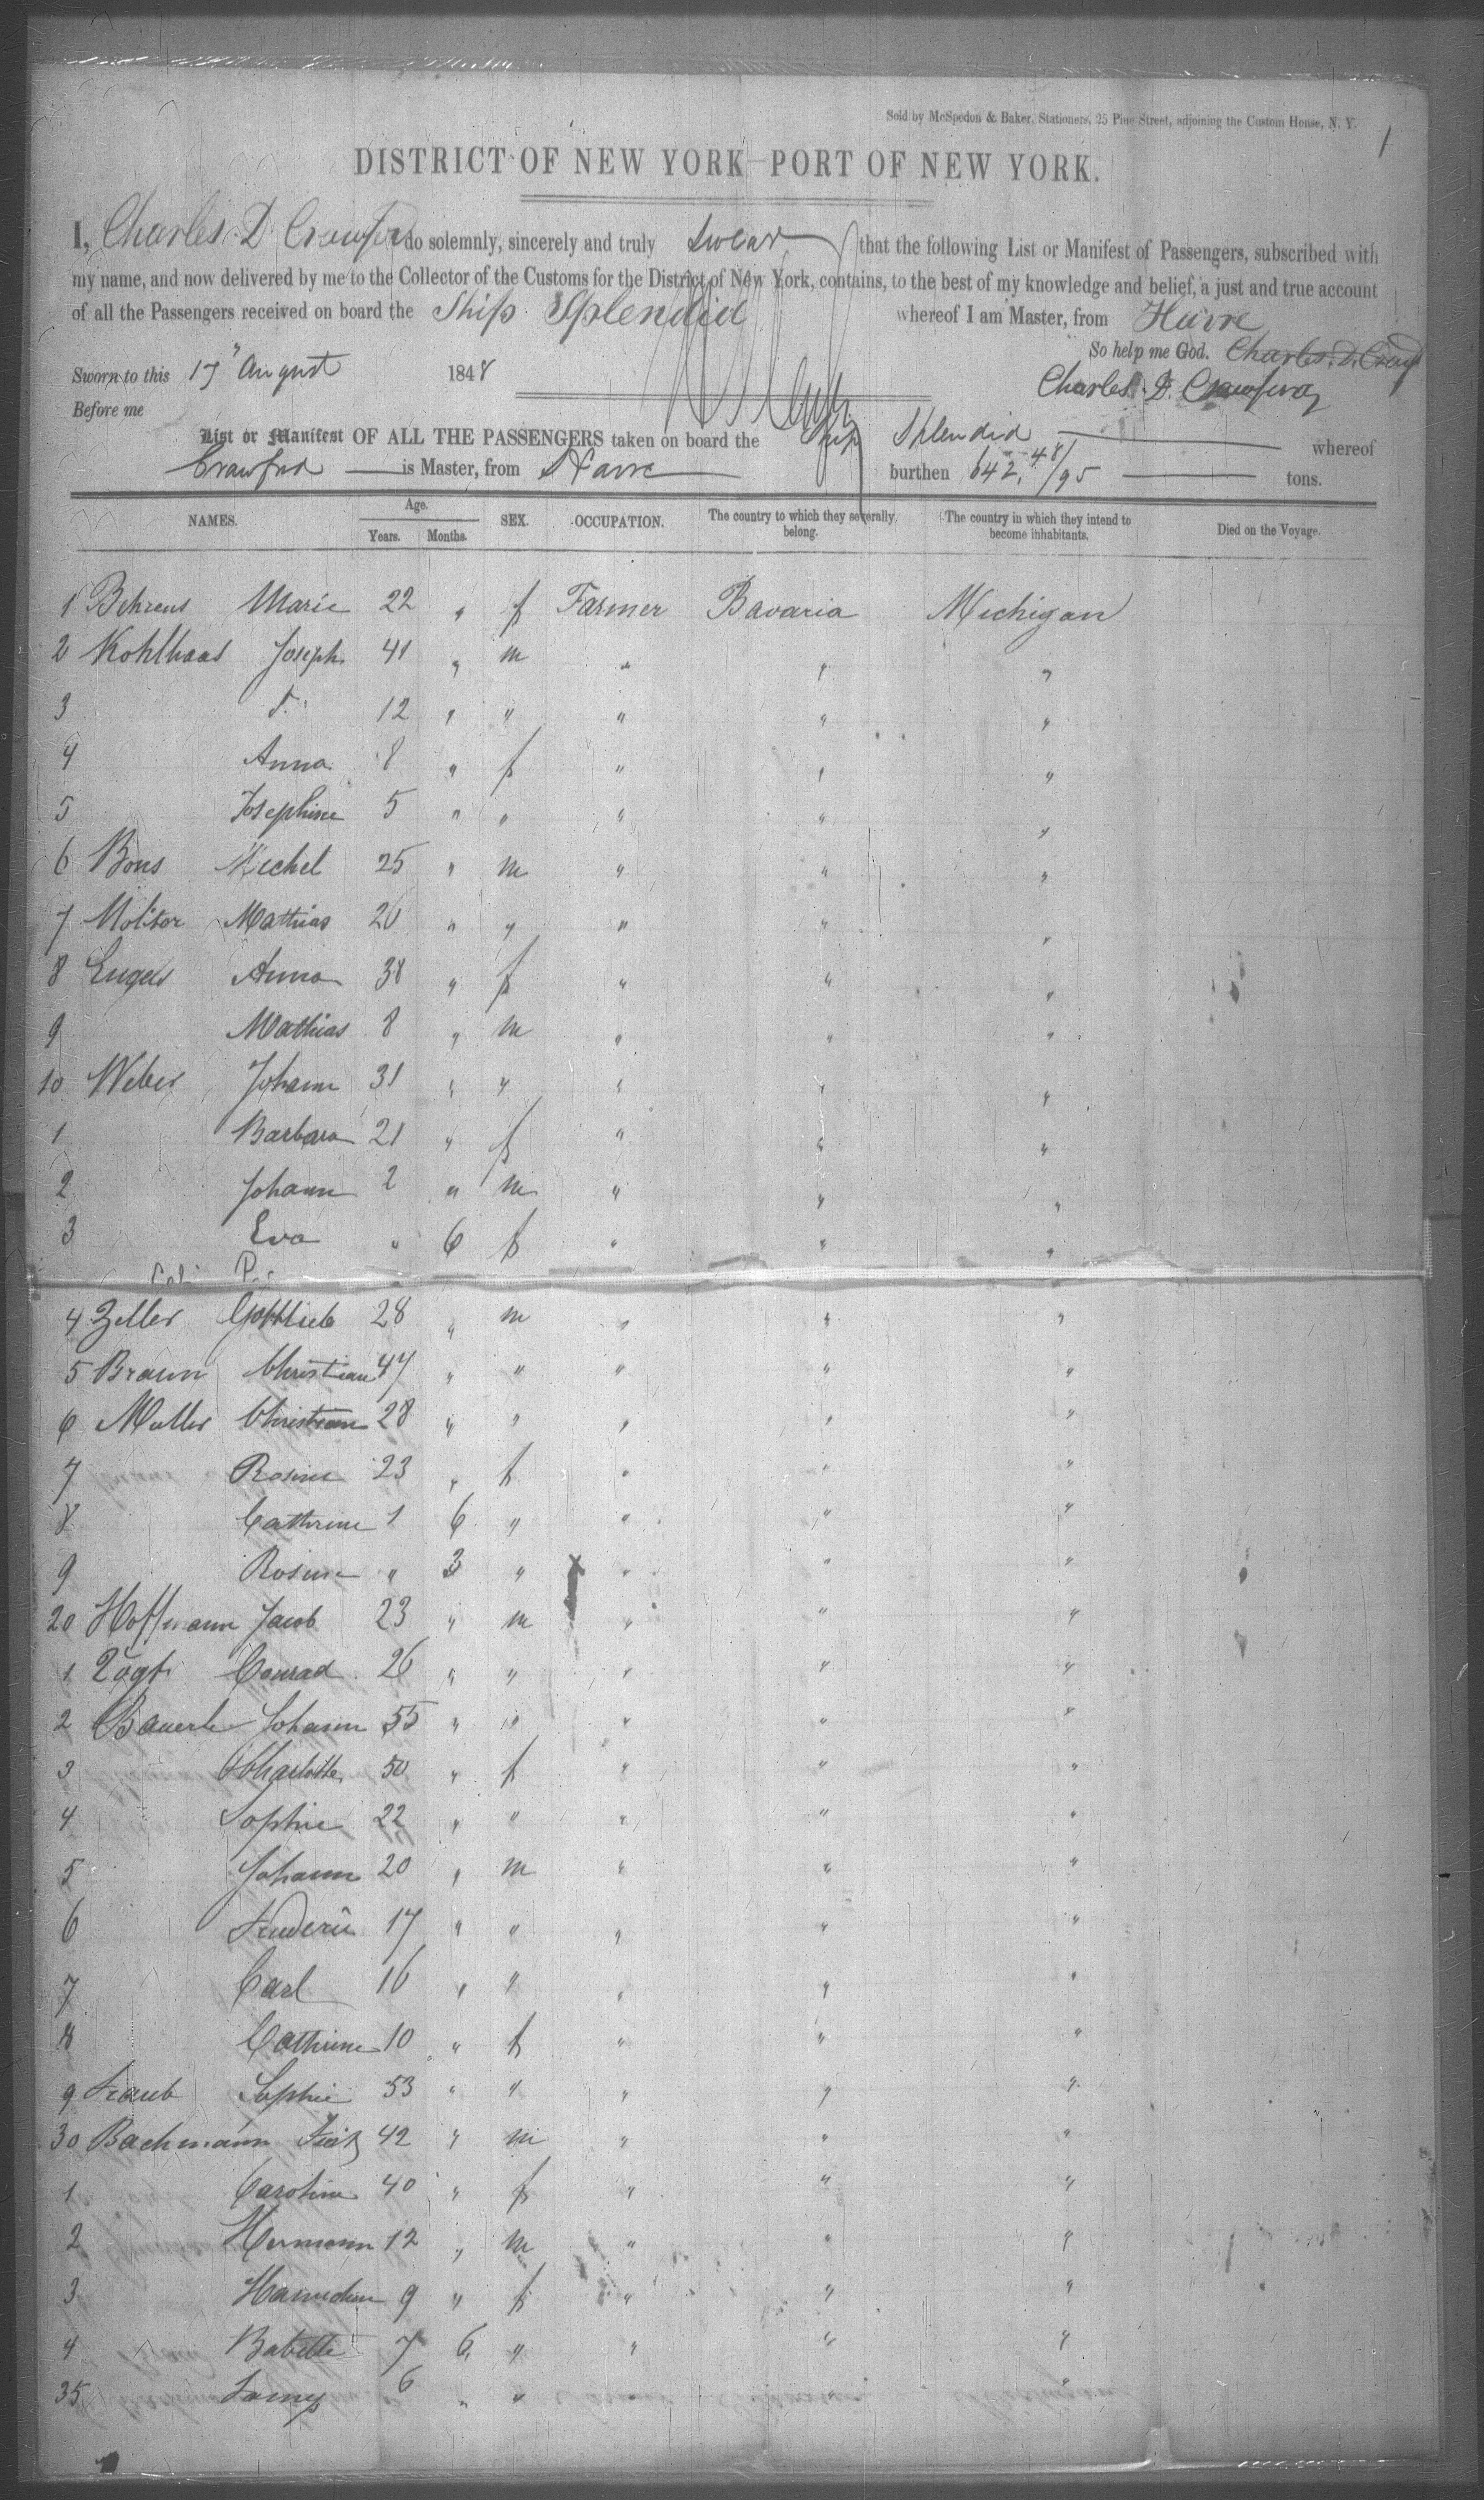 Sold by McSpedon & Baker, Stationers, 25 Pine Street, adjoining the Custom House, N. Y.
1
DISTRICT OF NEW YORK—PORT OF NEW YORK.
I, Charles D. Crawford do solemnly, sincerely and truly swear that the following List or Manifest of Passengers, subscribed with
my name, and now delivered by me to the Collector of the Customs for the District of New York, contains, to the best of my knowledge and belief, a just and true account
of all the Passengers received on board the Ship Splendid whereof I am Master, from Havre
So help me God. Charles. D. Crawf
Sworn to this 17" August 1848 Charles D. Crawford
Before me
List or Manifest OF ALL THE PASSENGERS taken on board the Ship Splendid whereof
Crawford is Master, from Havre burthen 642, 48/95 tons.
NAMES. Age. Years. Months. SEX. OCCUPATION. The country to which they severally belong. The country in which they intend to become inhabitants. Died on the Voyage.
1 Behrens Marie 22 " f Farmer Bavaria Michigan
2 Kohlhaas Joseph 41 " m " " "
3 d: 12 " " " " "
4 Anna 8 " f " " "
5 Josephine 5 " " " " "
6 Bons Michel 25 " m " " "
7 Molitor Mathias 26 " " " " "
8 Engels Anna 38 " f " " "
9 Mathias 8 " m " " "
10 Weber Johann 31 " " " " "
1 Barbara 21 " f " " "
2 Johann 2 " m " " "
3 Eva " 6 f " " "
4 Zeller Gottlieb 28 " m " " "
5 Braun Christian 47 " " " " "
6 Muller Christian 28 " " " " "
7 Rosine 23 " f " " "
8 Cathrine 1 6 " " " "
9 Rosine " 3 " " " "
20 Hoffmann Jacob 23 " m " " "
1 Vogt Conrad 26 " " " " "
2 Bauerle Johann 55 " " " " "
3 Charlotte 50 " f " " "
4 Sophie 22 " " " " "
5 Johann 20 " m " " "
6 17 " " " " "
7 Carl 16 " " " " "
8 Cathrine 10 " f " " "
9 Traub Sophie 53 " " " " "
30 Bachmann Fritz 42 " m " " "
1 Caroline 40 " f " " "
2 Hermann 12 " m " " "
3 Hannchen 9 " f " " "
4 Babette 7 6 " " " "
35 Fanny 6 " " " "